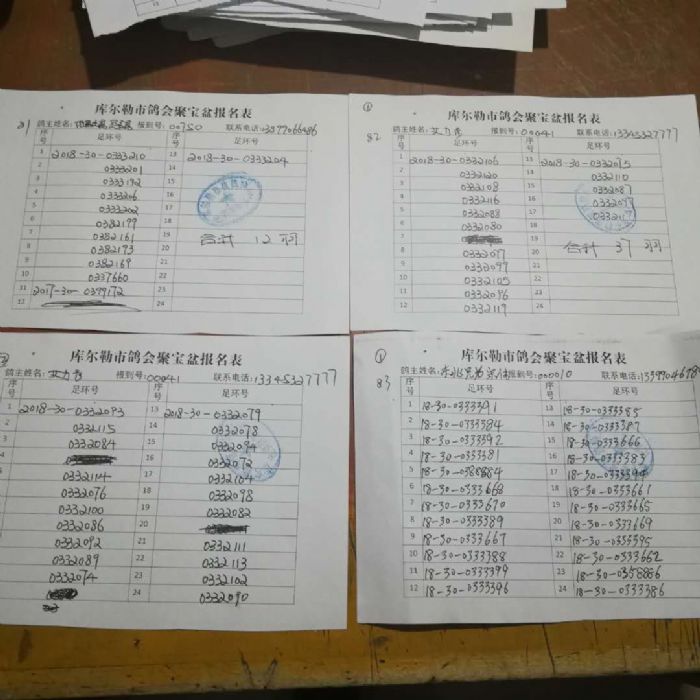 库尔勒市鸽会聚宝盆报名表
81 鸽主姓名: 报到号: 00750 联系电话: 13579066486
序号 足环号 序号 足环号
1 2018-30-0333210 13 2018-30-0333204
2 0333201 14
3 0333192 15
4 0333206 16
5 0333202 17
6 0382199 18
7 0382161 19 合计 12 羽
8 0382193 20
9 0382169 21
10 0337660 22
11 2017-30-0399172 23
12 24
① 库尔勒市鸽会聚宝盆报名表
82 鸽主姓名: 艾力 报到号: 00041 联系电话: 13345327777
序号 足环号 序号 足环号
1 2018-30-0332106 13 2018-30-0332075
2 0332120 14 0332110
3 0332108 15 0332087
4 0332116 16
5 0332088 17
6 0332080 18
7 19
8 0332077 20 合计 37 羽
9 0332099
10 0332105
11 0332096
12 0332119
库尔勒市鸽会聚宝盆报名表
鸽主姓名: 艾力 报到号: 00041 联系电话: 13345327777
序号 足环号 序号 足环号
1 2018-30-0332093 13 2018-30-0332079
2 0332115 14 0332078
3 0332084 15 0332094
16 0332072
0332114 17 0332104
0332076 18 0332098
0332100 19 0332082
0332086 20
0332092 21 0332111
0332089 22 0332113
0332074 23 0332102
24 0332090
① 库尔勒市鸽会聚宝盆报名表
83 鸽主姓名: 报到号: 00010 联系电话:
序号 足环号 序号 足环号
1 18-30-0333391 13 18-30-0333385
2 18-30-0333384 14 18-30-0333387
3 18-30-0333392 15 18-30-0333666
4 18-30-0333381 16 18-30-0333383
5 18-30-0388884 17 18-30-0333394
6 18-30-0333668 18 18-30-0333661
7 18-30-0333670 19 18-30-0333665
8 18-30-0333389 20 18-30-0333669
9 18-30-0333667 21 18-30-0333395
10 18-30-0333388 22 18-30-0333662
11 18-30-0333399 23 18-30-0358886
12 18-30-0333396 24 18-30-0333386